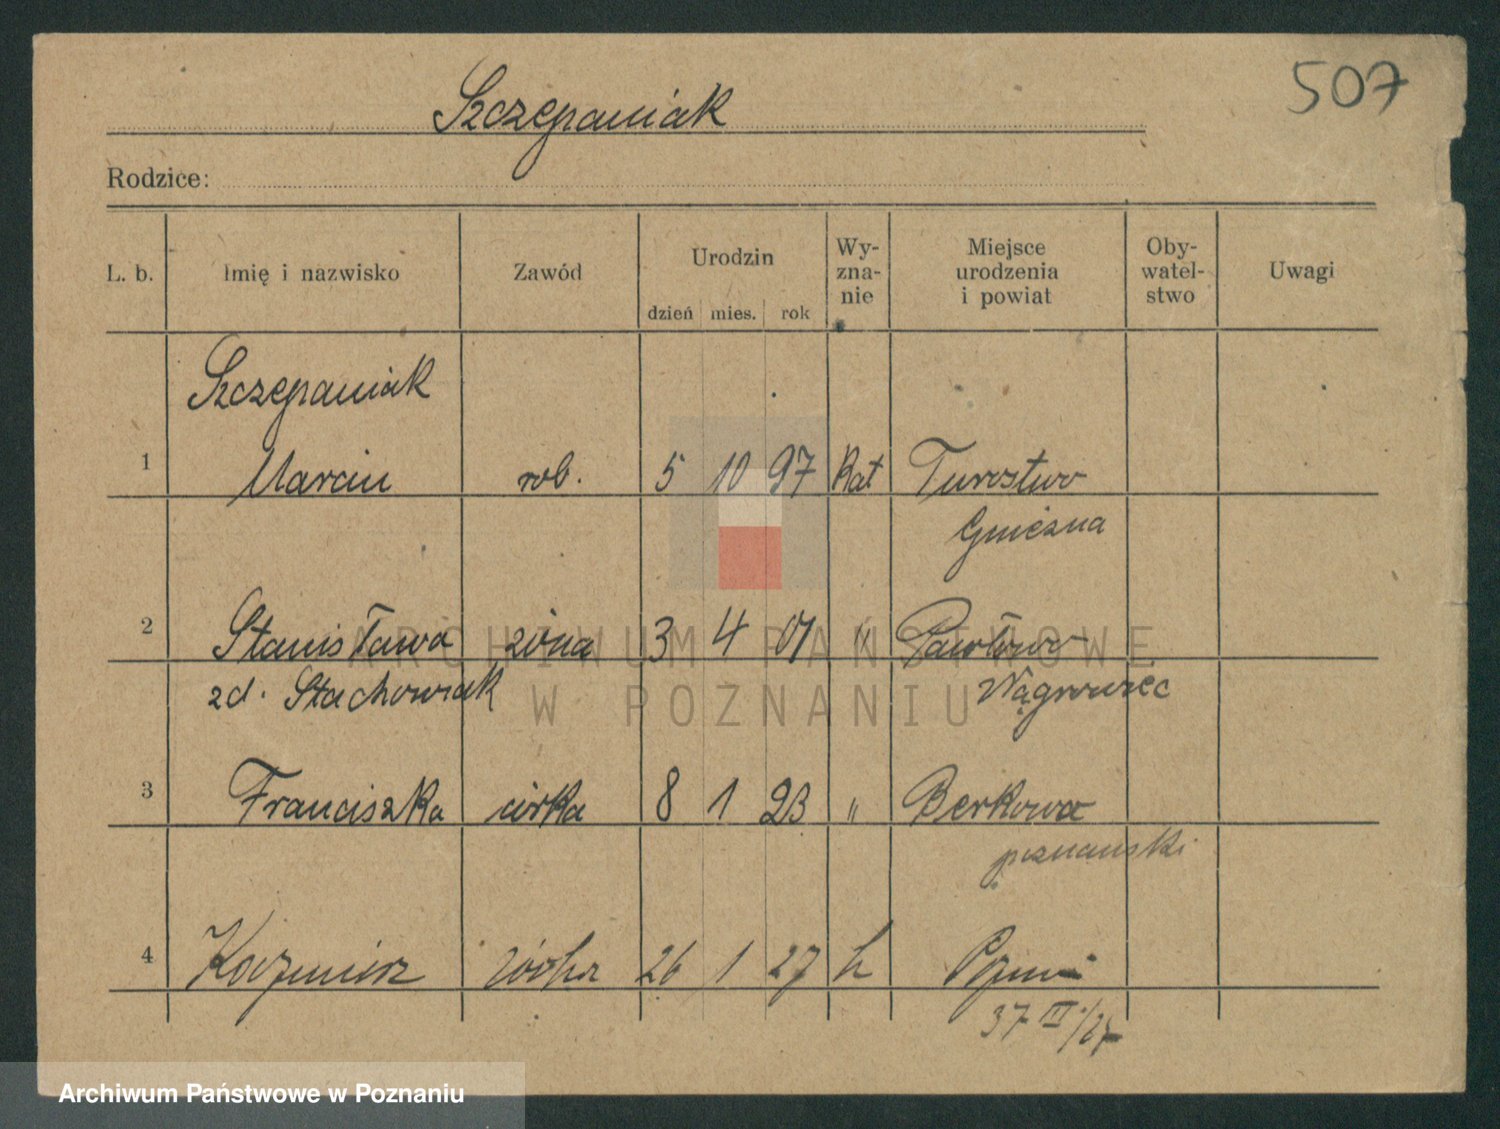 507
Szczepaniak
Rodzice:
L. b. Imię i nazwisko Zawód Urodzin dzień mies. rok Wy-zna-nie Miejsce urodzenia i powiat Oby-watel-stwo Uwagi
Szczepaniak
1 Marcin rob. 5 10 97 Kat Turostwo
Gniezna
2 Stanisława żona 3 4 01 " Pawłowo
zd. Stachowiak Wągrowiec
3 Franciszka córka 8 1 23 " Berkowa
poznanski
4 Kazimierz 26 1 27
37 III/27
ARCHIWUM PAŃSTWOWE
W POZNANIU
Archiwum Państwowe w Poznaniu